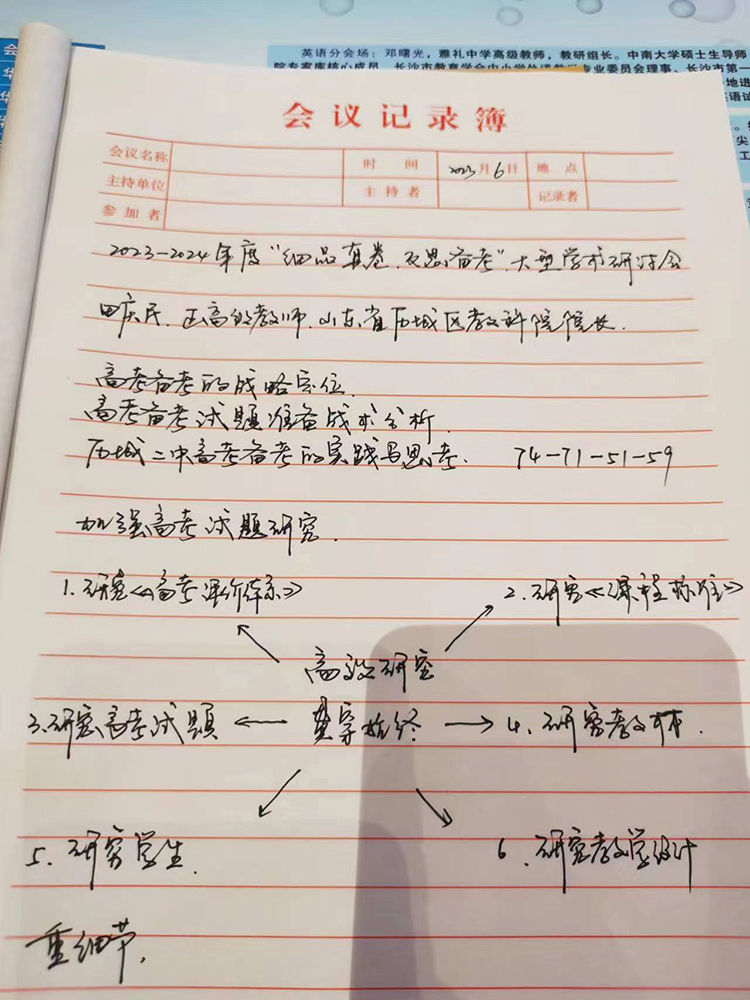 英语分会场：邓曙光，雅礼中学高级教师，教研组长。中南大学硕士生导师
院专家库核心成员
专业委员会理事、长沙市第一
会议记录簿
会议名称 时间 2023月6日 地点
主持单位 主持者 记录者
参加者
2023-2024年度“细品真卷、反思备考”大型学术研讨会
田庆民、正高级教师、山东省历城区教科院院长.
高考备考的战略定位.
高考备考试题准备战术分析.
历城二中高考备考的实践与思考. 74-71-51-59
加强高考试题研究.
1.研究《高考评价体系》
2.研究《课程标准》
高效研究
3.研究高考试题
贯穿始终
4.研究教材.
5.研究学生.
6.研究教学设计
重细节.